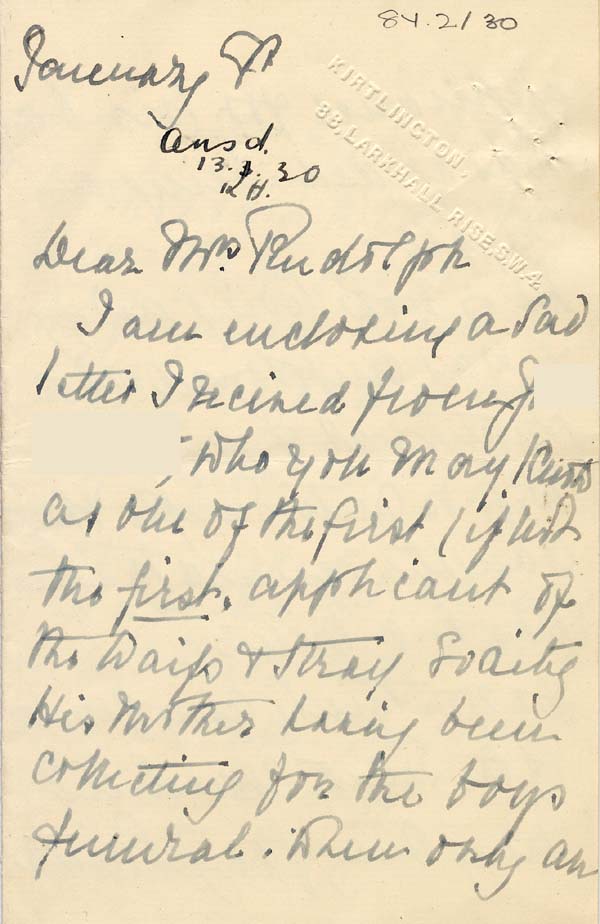 84.2/30
January
KIRTLINGTON,
88, LARKHALL RISE, S.W.4.
Ansd.
13.1.30
Dear Mrs Rudolph
I am enclosing a sad
letter I received from J
, who you may know
as one of the first (if not
the first, applicant of
the Waifs & Stray Society
His Mother having been
collecting for the boys
funeral. When only an